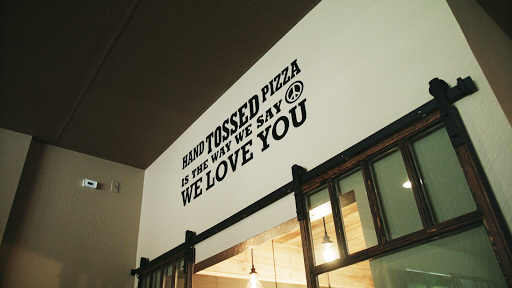 HAND TOSSED PIZZA
IS THE WAY WE SAY
WE LOVE YOU